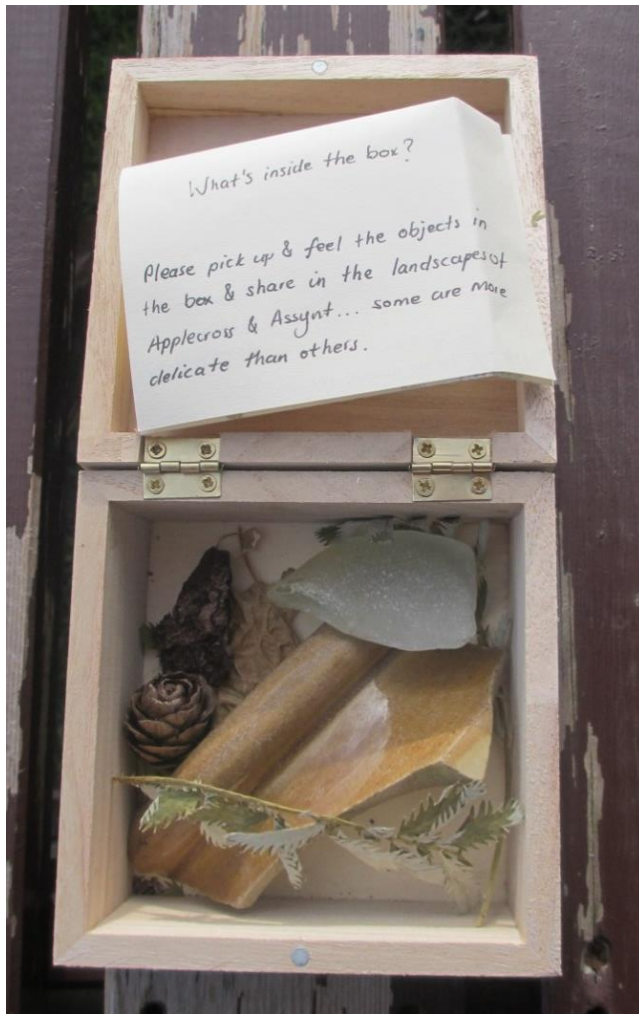 What's inside the box?
Please pick up & feel the objects in
the box & share in the landscapes of
Applecross & Assynt... some are more
delicate than others.